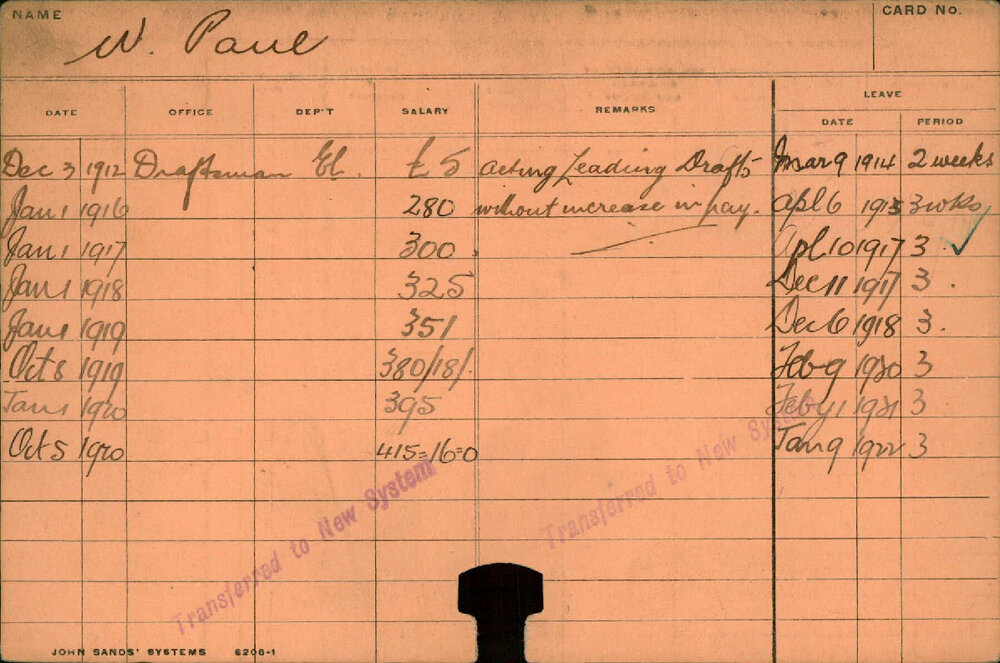 NAME CARD No.
W. Paul
LEAVE
DATE OFFICE DEP'T SALARY REMARKS DATE PERIOD
Dec 3 1912 Draftsman El. £5 acting Leading Drafts- Mar 9 1914 2 weeks
Jan 1 1916 280 without increase in pay. Apl 6 1915 3 wks
Jan 1 1917 300 Apl 10 1917 3
Jan 1 1918 325 Dec 11 1917 3
Jan 1 1919 351 Dec 6 1918 3
Oct 8 1919 380/18/- Feb 9 1920 3
Jan 1 1920 395 Feb 1921 3
Oct 5 1920 415=16=0 Jan 9 1922 3
Transferred to New System
Transferred to New System
JOHN SANDS' SYSTEMS 6206-1